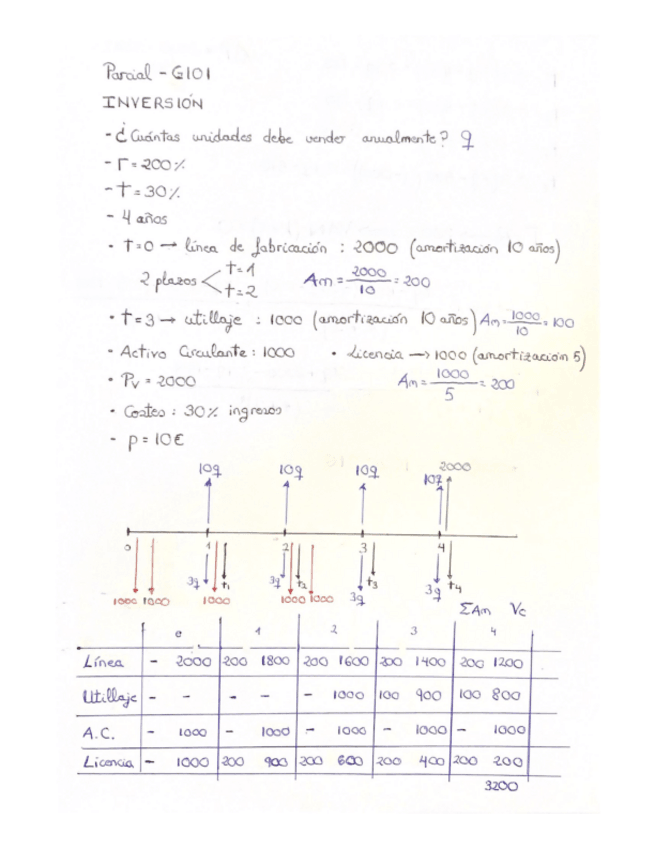 Parcial - G101
INVERSIÓN
- ¿Cuántas unidades debe vender anualmente? q
- r = 200%
- T = 30%
- 4 años
· t=0 → línea de fabricación : 2000 (amortización 10 años)
2 plazos < t=1 t=2 Am = 2000/10 = 200
· t=3 → utillaje : 1000 (amortización 10 años) Am = 1000/10 = 100
- Activo Circulante : 1000 · Licencia → 1000 (amortización 5)
· Pv = 2000 Am = 1000/5 = 200
· Costes : 30% ingresos
- p = 10€
10q 10q 10q 10q 2000
0 1 2 3 4
3q t1 3q t2 3q t3 3q t4
1000 1000 1000 1000 1000
ΣAm Vc
0 1 2 3 4
Línea - 2000 200 1800 200 1600 200 1400 200 1200
Utillaje - - - - - 1000 100 900 100 800
A.C. - 1000 - 1000 - 1000 - 1000 - 1000
Licencia - 1000 200 900 200 600 200 400 200 200
3200